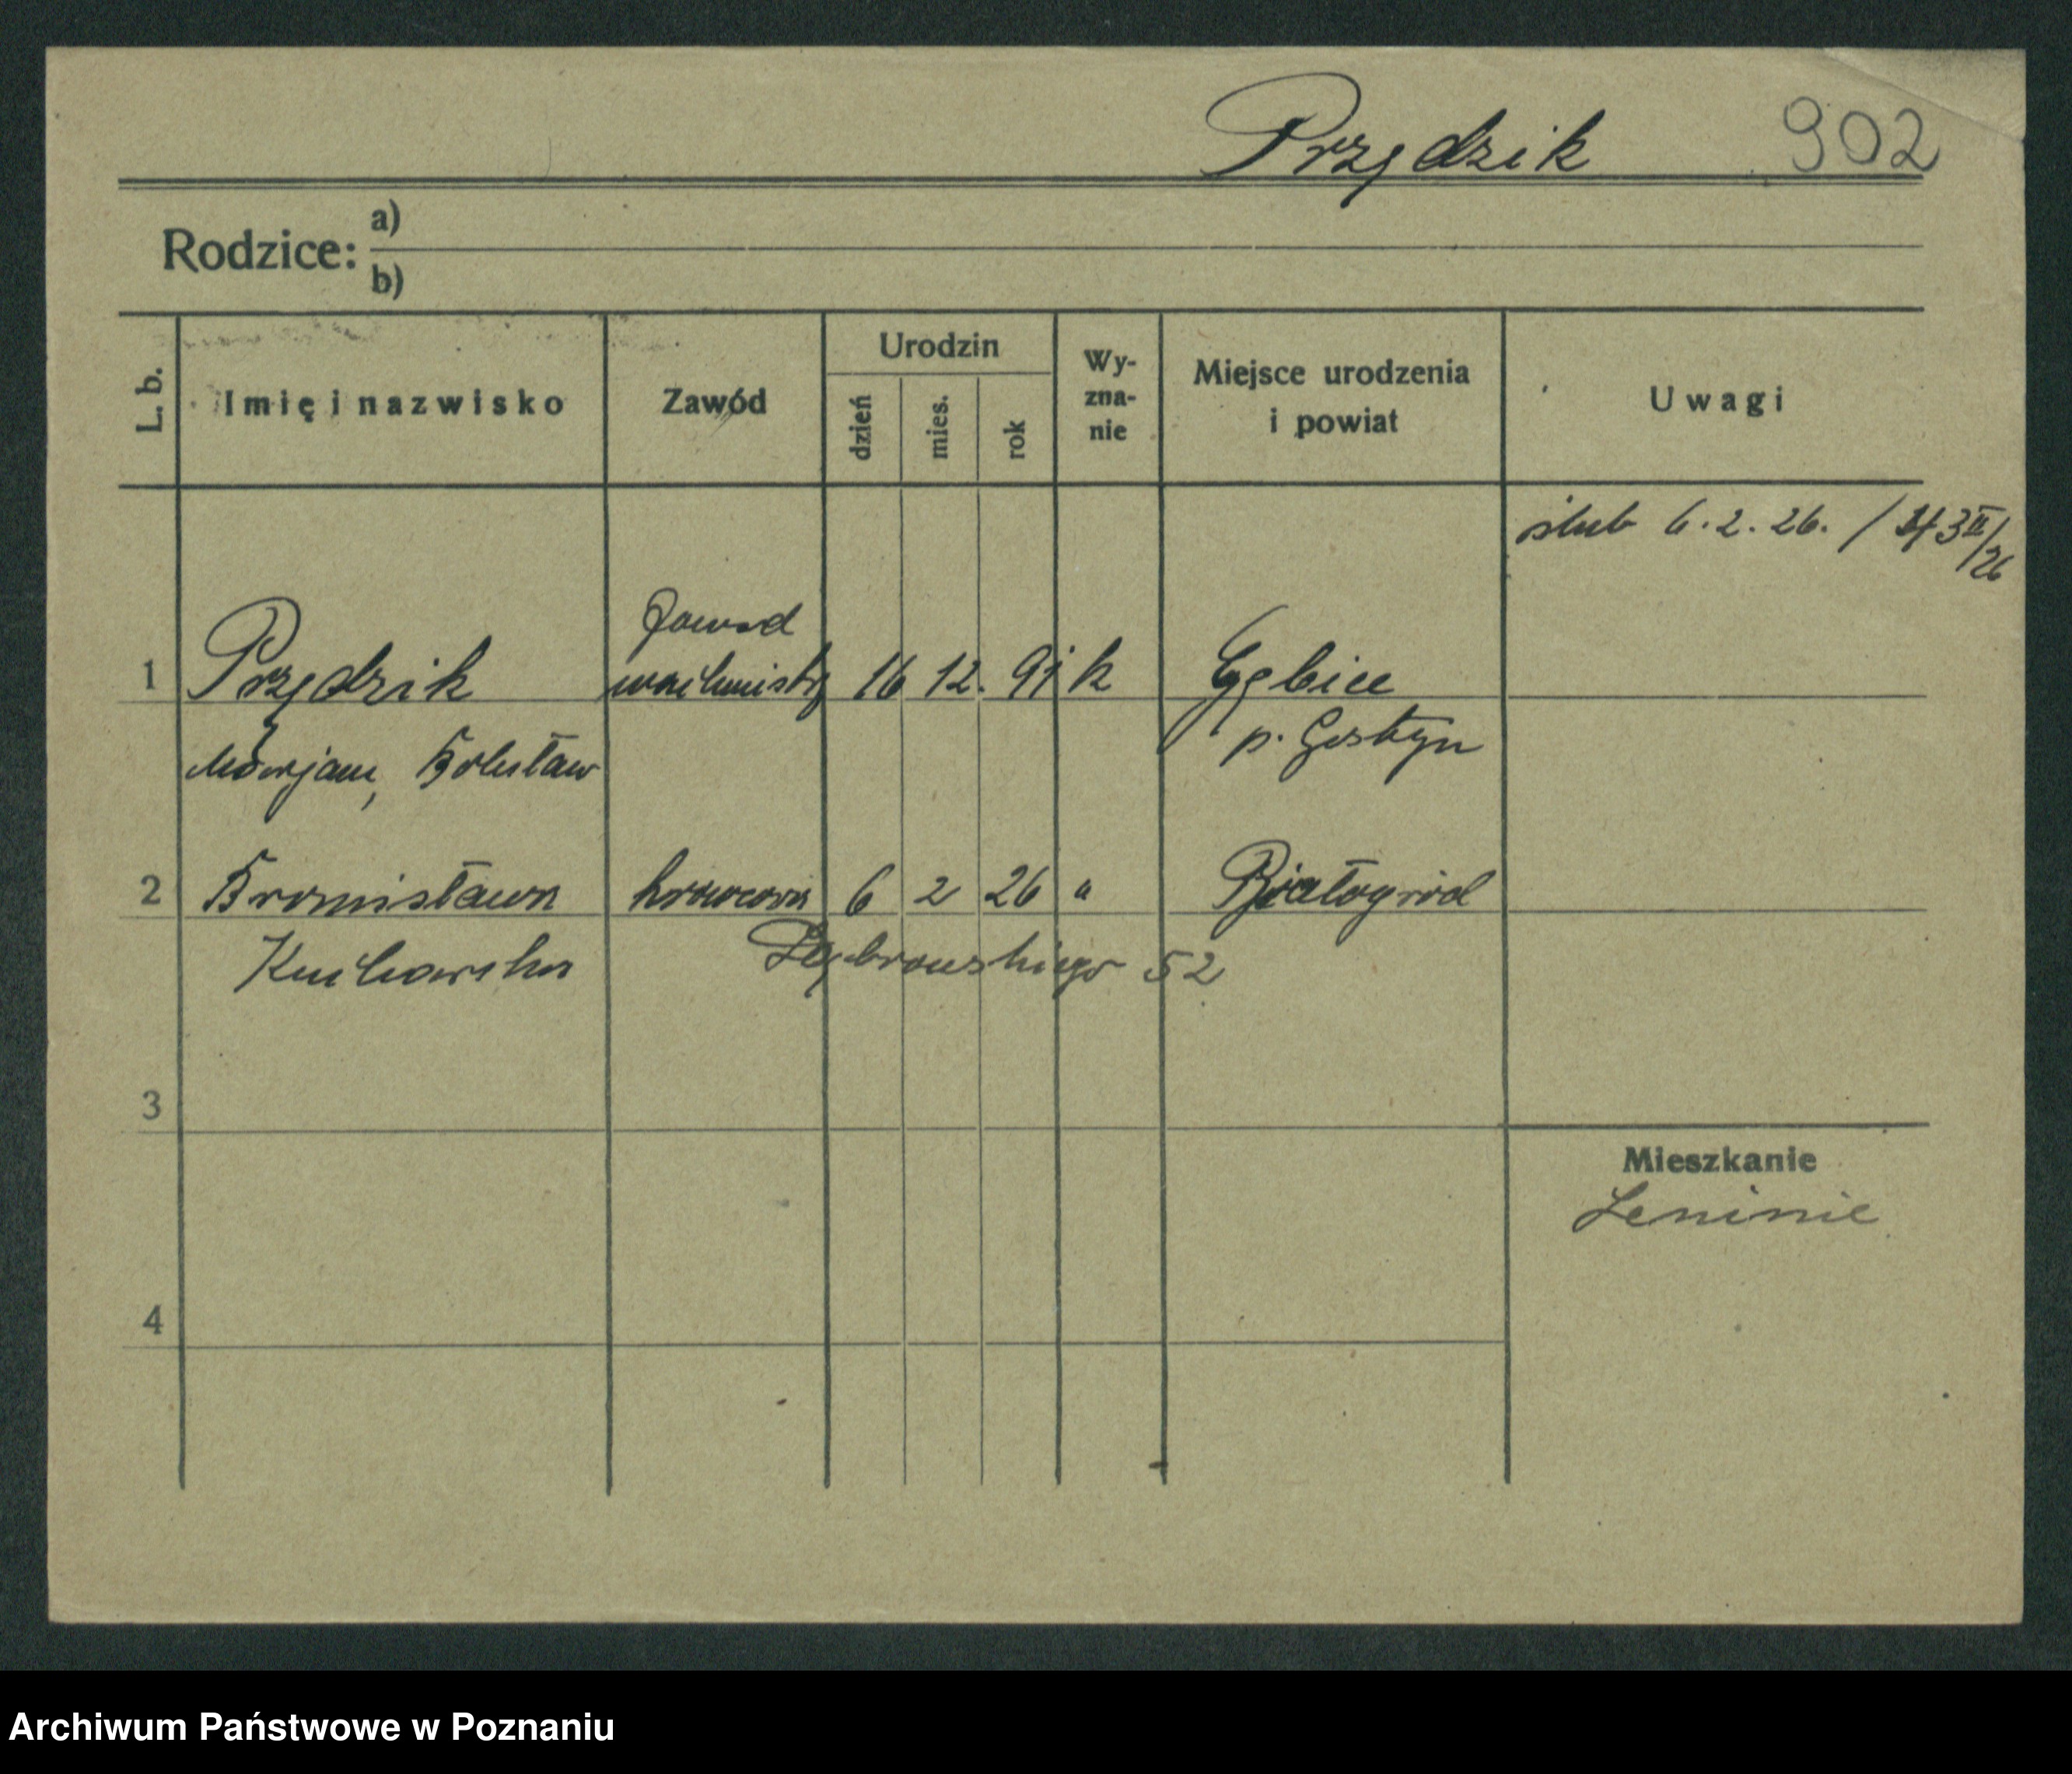 Przędzik 902
Rodzice: a)
b)
L. b. Imię i nazwisko Zawód Urodzin dzień mies. rok Wyznanie Miejsce urodzenia i powiat Uwagi
ślub 6. 2. 26. /
zawod
1 Przędzik wachmistrz 16 12. 91 k Gębice
Marjan, Bolesław p. Gostyn
2 Bronisława krawcowa 6 2 26 " Białogród
Kucharska Dąbrowskiego 52
3
Mieszkanie
4
Archiwum Państwowe w Poznaniu